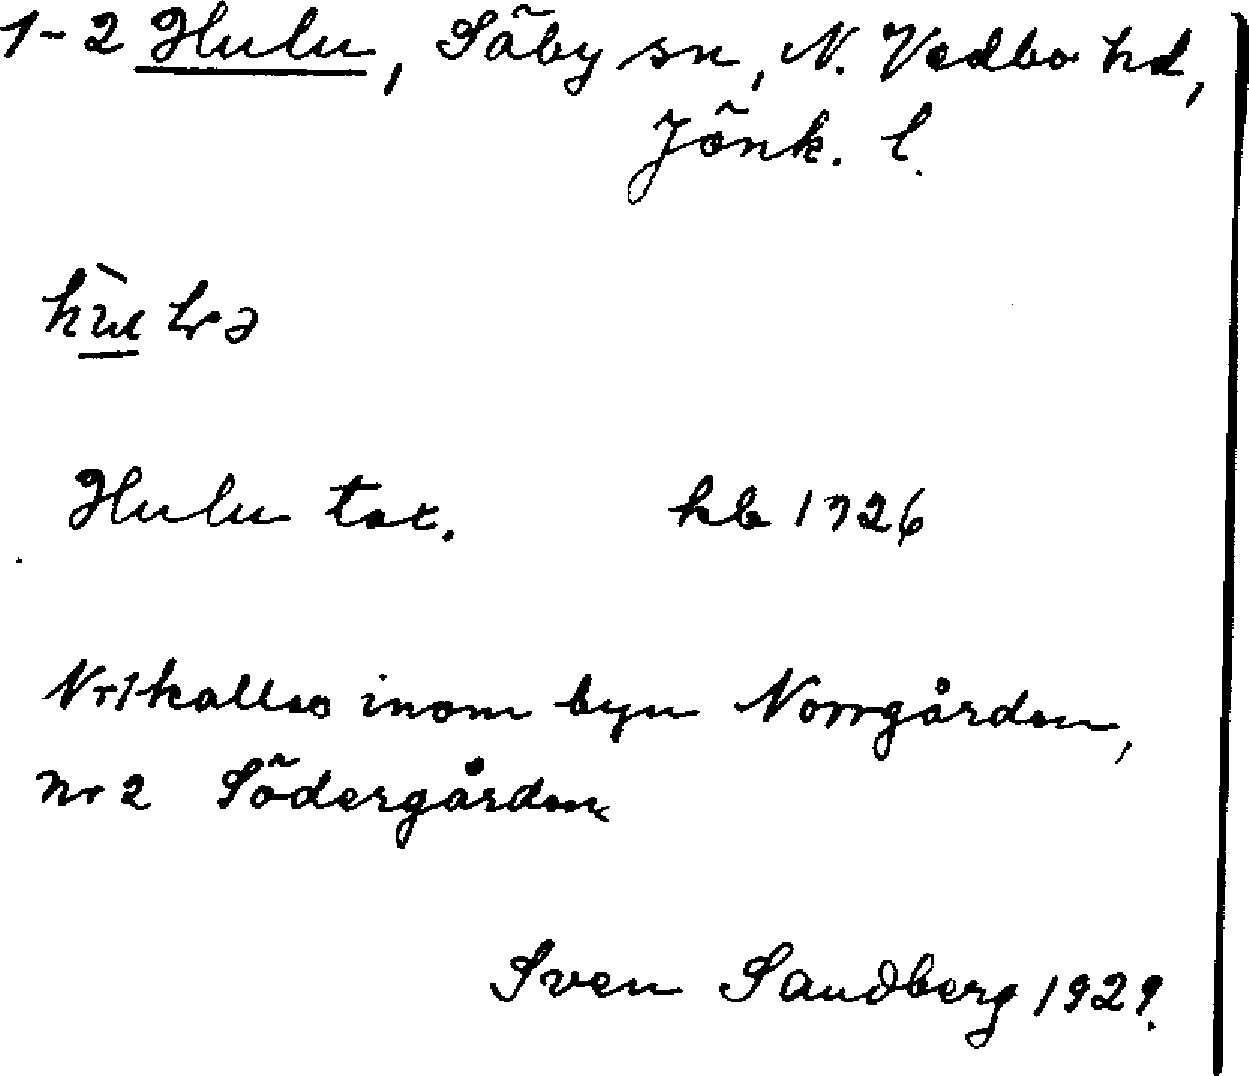 1-2 Hulu, Säby sn, N. Vedbo hd,
Jönk. l.
Hulu tax. hb 1726
Nr 1 kallas inom byn Norrgården,
nr 2 Södergården
Sven Sandberg 1929.